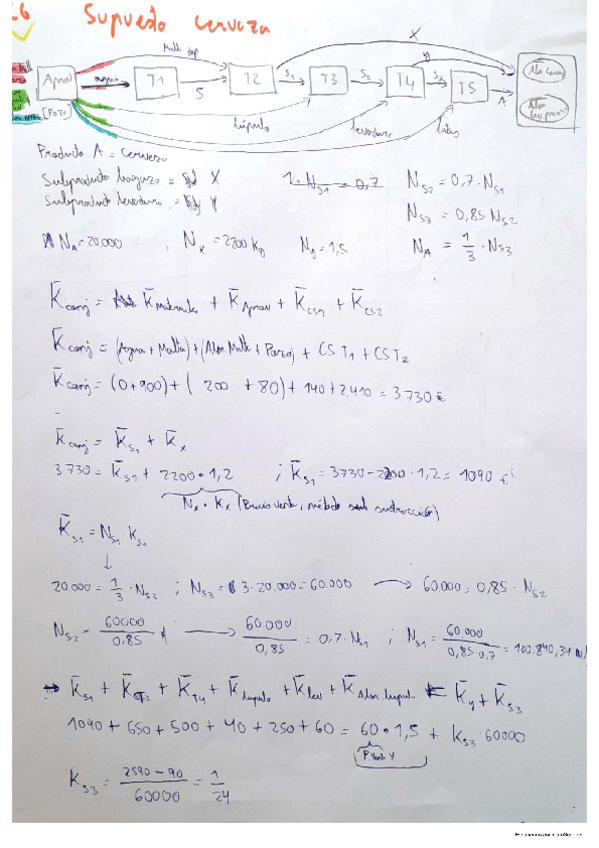 26 Supuesto Cerveza
Aprov
agua
[Pozo]
T1
S
T2
S1
T3
S2
T4
S3
T5
A
X
y
lúpulo
levadura
latas
Producto A = Cerveza
Subproducto bagazo = X
Subproducto levadura = Y
1·N_S1 = 0,7
N_S2 = 0,7·N_S1
N_S3 = 0,85 N_S2
N_A = 20.000 N_x = 2200 kg N_y = 1,5 N_A = 1/3·N_S3
K̄conj = K̄materiales + K̄Aprov + K̄CS1 + K̄CS2
K̄conj = (Agua + Malta) + (Alm Malta + Pozo) + CS T1 + CS T2
K̄conj = (0+900) + (200 + 80) + 140 + 2.410 = 3.730 €
K̄conj = K̄s1 + K̄x
3.730 = K̄s1 + 2200·1,2 ; K̄s1 = 3730 - 2200·1,2 = 1090 €
N_x · K_x (Precio venta, método sustracción)
K̄s1 = N_s1 K_s1
20.000 = 1/3·N_S2 ; N_S3 = 3·20.000 = 60.000 → 60.000 = 0,85·N_S2
N_S2 = 60000/0,85 → 60.000/0,85 = 0,7·N_S1 ; N_S1 = 60.000/0,85·0,7 = 100.840,34
K̄s1 + K̄T3 + K̄T4 + K̄lúpulo + K̄lev + K̄Alm. lúpul. = K̄y + K̄s3
1090 + 650 + 500 + 40 + 250 + 60 = 60·1,5 + K_s3·60000
P. Venta Y
K_s3 = 2590 - 90/60000 = 1/24